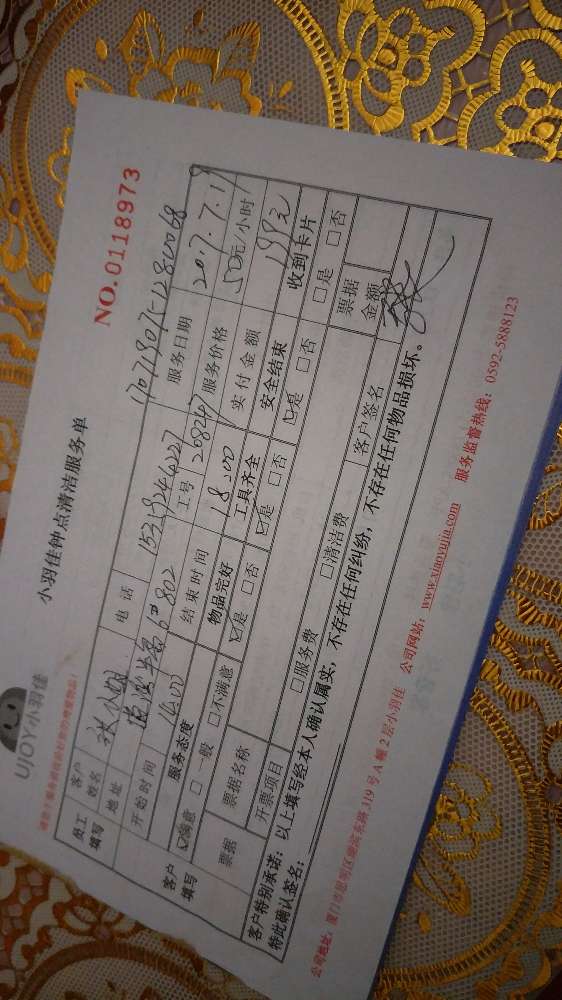 UJOY小羽佳
小羽佳钟点清洁服务单
NO.0118973
员工填写 客户姓名 张小姐 电话
地址 6#802 服务日期 2017.7.19
开始时间 14:00 结束时间 18:00 工号 208247 服务价格 50元/小时
实付金额 199元
客户填写 服务态度 物品完好 工具齐全 安全结束 收到卡片
☑满意 □一般 □不满意 ☑是 □否 ☑是 □否 ☑是 □否 □是 □否
票据 票据名称 票据金额
开票项目 □服务费 □清洁费 客户签名
客户特别承诺：以上填写经本人确认属实，不存在任何纠纷，不存在任何物品损坏。
特此确认签名：
319号A幢2层小羽佳 公司网站：www.xiaoyujia.com 服务监督热线：0592-5888123